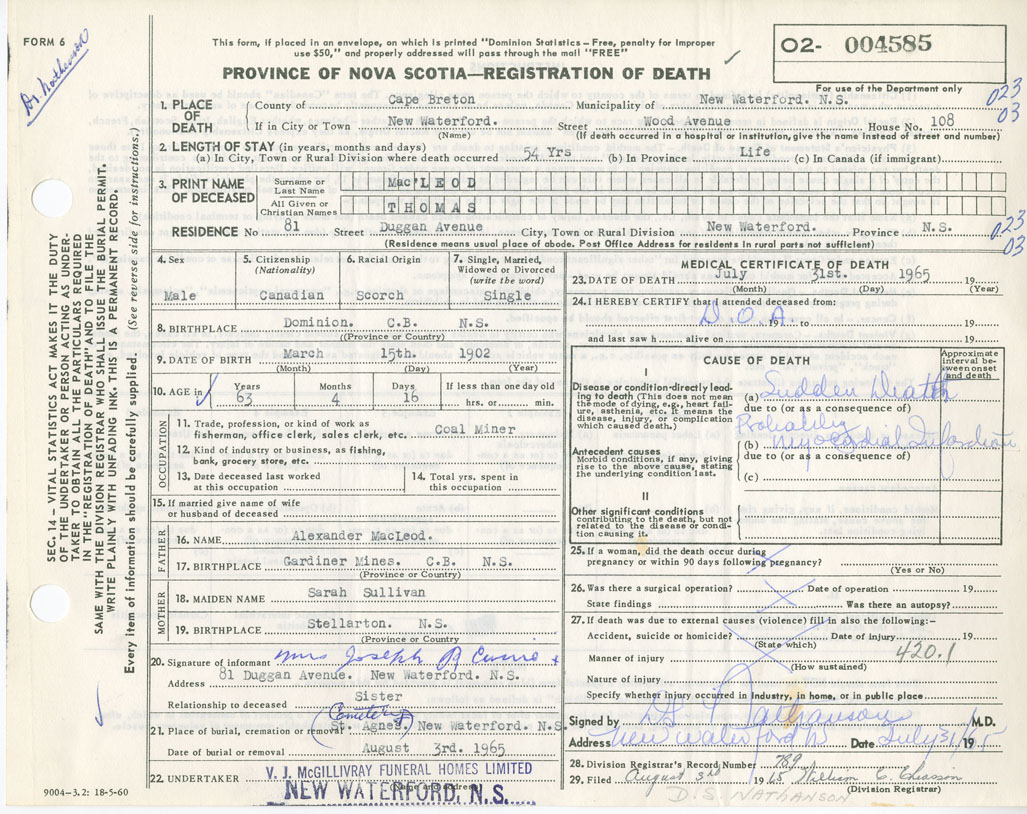 FORM 6
Dr. Nathanson
This form, if placed in an envelope, on which is printed "Dominion Statistics – Free, penalty for improper
use $50," and properly addressed will pass through the mail "FREE"
O2- 004585
PROVINCE OF NOVA SCOTIA—REGISTRATION OF DEATH
For use of the Department only
023
03
1. PLACE OF DEATH
County of Cape Breton Municipality of New Waterford. N.S.
If in City or Town New Waterford. Street Wood Avenue House No. 108
(Name) (If death occurred in a hospital or institution, give the name instead of street and number)
2. LENGTH OF STAY (in years, months and days)
(a) In City, Town or Rural Division where death occurred 54 Yrs (b) In Province Life (c) In Canada (if immigrant)
3. PRINT NAME OF DECEASED
Surname or Last Name Mac'LEOD
All Given or Christian Names THOMAS
RESIDENCE No 81 Street Duggan Avenue City, Town or Rural Division New Waterford. Province N.S.
(Residence means usual place of abode. Post Office Address for residents in rural parts not sufficient)
023
03
4. Sex
Male
5. Citizenship
(Nationality)
Canadian
6. Racial Origin
Scorch
7. Single, Married,
Widowed or Divorced
(write the word)
Single
8. BIRTHPLACE Dominion. C.B. N.S.
(Province or Country)
9. DATE OF BIRTH March 15th. 1902
(Month) (Day) (Year)
10. AGE in
Years Months Days If less than one day old
63 4 16 hrs. or min.
OCCUPATION
11. Trade, profession, or kind of work as
fisherman, office clerk, sales clerk, etc. Coal Miner
12. Kind of industry or business, as fishing,
bank, grocery store, etc.
13. Date deceased last worked
at this occupation
14. Total yrs. spent in
this occupation
15. If married give name of wife
or husband of deceased
FATHER
16. NAME Alexander MacLeod.
17. BIRTHPLACE Gardiner Mines. C.B. N.S.
(Province or Country)
MOTHER
18. MAIDEN NAME Sarah Sullivan
19. BIRTHPLACE Stellarton. N.S.
(Province or Country)
20. Signature of informant Mrs Joseph R Currie
Address 81 Duggan Avenue. New Waterford. N.S.
Relationship to deceased Sister
(Cemetery)
21. Place of burial, cremation or removal St. Agnes, New Waterford. N.S
Date of burial or removal August 3rd. 1965
22. UNDERTAKER V. J. McGILLIVRAY FUNERAL HOMES LIMITED
(Name and address)
NEW WATERFORD, N.S.
9004-3.2: 18-5-60
MEDICAL CERTIFICATE OF DEATH
23. DATE OF DEATH July 31st. 1965 19
(Month) (Day) (Year)
24. I HEREBY CERTIFY that I attended deceased from:
D.O.A. 19 to 19
and last saw h alive on 19
CAUSE OF DEATH
Approximate interval between onset and death
I
Disease or condition directly leading to death (This does not mean the mode of dying, e.g., heart failure, asthenia, etc. It means the disease, injury, or complication which caused death.)
(a) Sudden Death
due to (or as a consequence of)
Probability
(b) Myocardial Infarction
due to (or as a consequence of)
(c)
Antecedent causes
Morbid conditions, if any, giving rise to the above cause, stating the underlying condition last.
II
Other significant conditions
contributing to the death, but not related to the disease or condition causing it.
25. If a woman, did the death occur during
pregnancy or within 90 days following pregnancy?
(Yes or No)
26. Was there a surgical operation? Date of operation 19
State findings Was there an autopsy?
27. If death was due to external causes (violence) fill in also the following:-
Accident, suicide or homicide? Date of injury 19
(State which)
420.1
Manner of injury
(How sustained)
Nature of injury
Specify whether injury occurred in industry, in home, or in public place
Signed by DS Nathanson M.D.
Address New Waterford Date July 31 1965
28. Division Registrar's Record Number 789
29. Filed August 3rd 1965 William C. Chiasson
(Division Registrar)
D.S. NATHANSON
SEC. 14 – VITAL STATISTICS ACT MAKES IT THE DUTY
OF THE UNDERTAKER OR PERSON ACTING AS UNDER-
TAKER TO OBTAIN ALL THE PARTICULARS REQUIRED
IN THE "REGISTRATION OF DEATH" AND TO FILE THE
SAME WITH THE DIVISION REGISTRAR WHO SHALL ISSUE THE BURIAL PERMIT.
WRITE PLAINLY WITH UNFADING INK THIS IS A PERMANENT RECORD.
Every item of information should be carefully supplied. (See reverse side for instructions.)